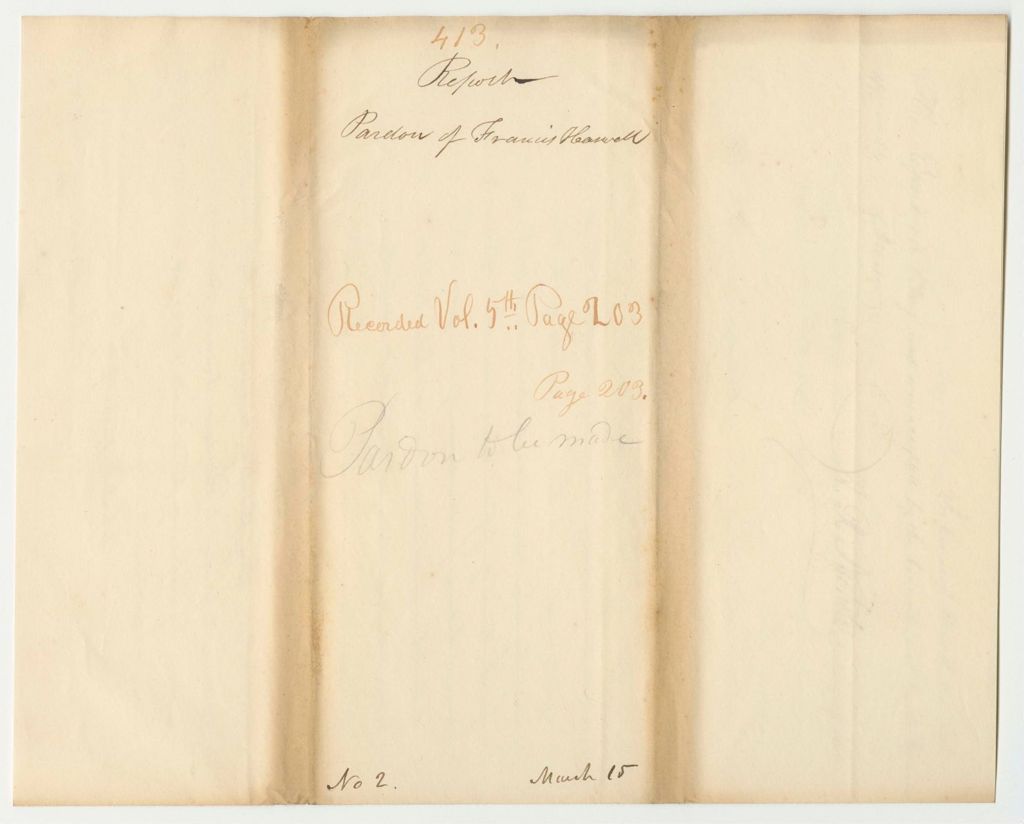 413.
Report
Pardon of Francis Haswell
Recorded Vol. 5th. Page 203
Page 203.
Pardon to be made
No 2. March 15